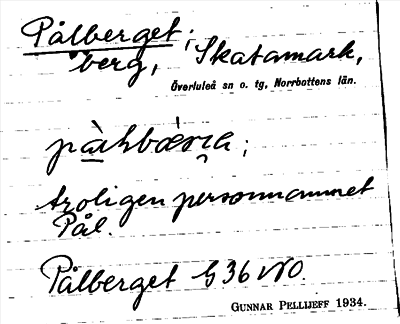 Pålberget;
berg, Skatamark,
Överluleå sn o. tg, Norrbottens län.
troligen personnamnet
Pål.
Pålberget G36NO.
GUNNAR PELLIJEFF 1934.